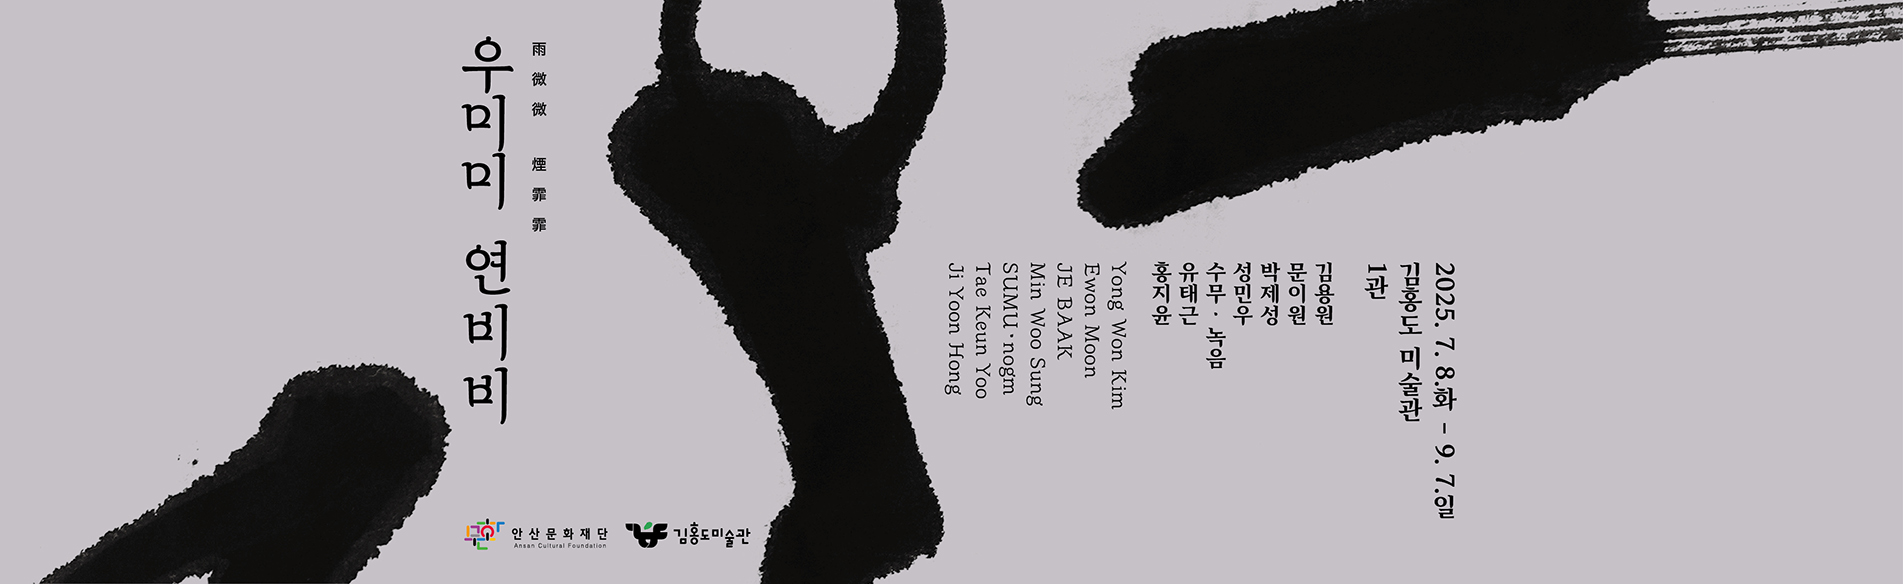 우미미 연비비
雨微微 煙霏霏
2025. 7. 8.화 - 9. 7.일
김홍도 미술관
1관
김용원
문이원
박제성
성민우
수무·녹음
유태근
홍지윤
Yong Won Kim
Ewon Moon
JE BAAK
Min Woo Sung
SUMU·nogm
Tae Keun Yoo
Ji Yoon Hong
문화
안산문화재단
Ansan Cultural Foundation
김홍도미술관